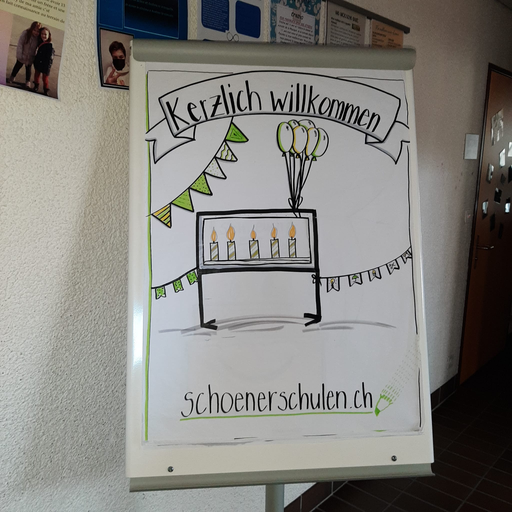 Kerzlich willkommen
schoenerschulen.ch